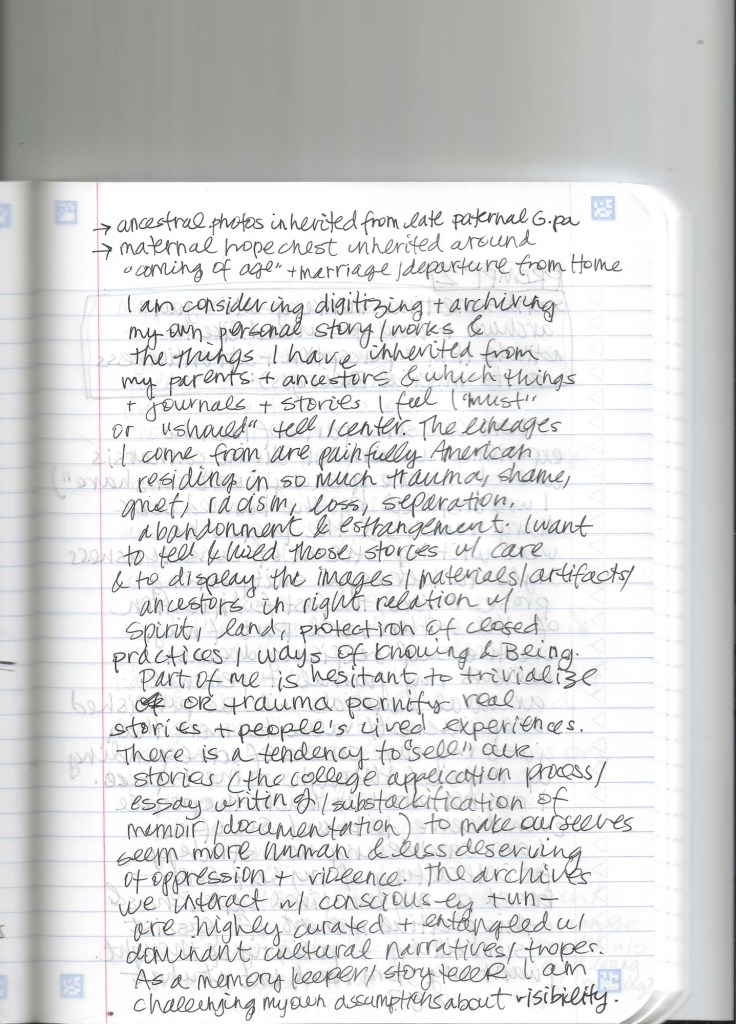 → ancestral photos inherited from late paternal G.pa
→ maternal hope chest inherited around
"coming of age" + marriage / departure from Home
I am considering digitizing + archiving
my own personal story / works &
the things I have inherited from
my parents + ancestors & which things
+ journals + stories I feel I "must"
or "should" tell / center. The lineages
I come from are painfully American
residing in so much trauma, shame,
grief, racism, loss, separation,
abandonment & estrangement. I want
to tell & hold those stories w/ care
& to display the images / materials / artifacts /
ancestors in right relation w/
spirit, land, protection of closed
practices / ways of knowing & Being.
Part of me is hesitant to trivialize
or trauma pornify real
stories + people's lived experiences.
There is a tendency to "sell" our
stories (the college application process /
essay writing / substackification of
memoir / documentation) to make ourselves
seem more human & less deserving
of oppression + violence. The archives
we interact w/ conscious-ly + un-
are highly curated + entangled w/
dominant cultural narratives / tropes.
As a memory keeper / story teller I am
challenging my own assumptions about visibility.